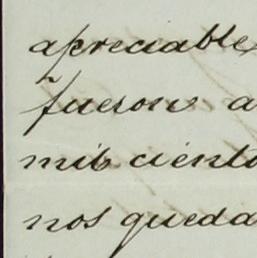 apreciable
fueron a
mil ciento
nos queda